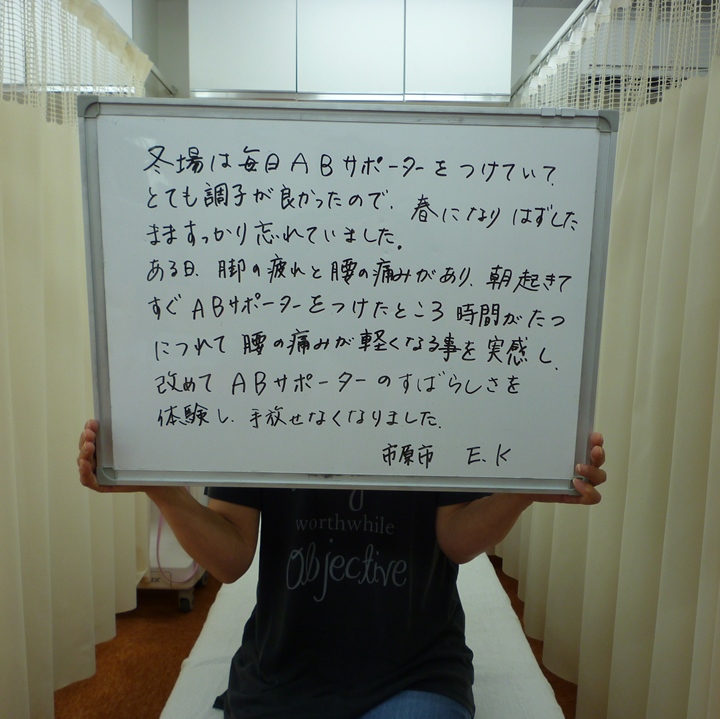 冬場は毎日ABサポーターをつけていて、
とても調子が良かったので、春になりはずした
まますっかり忘れていました。
ある日、脚の疲れと腰の痛みがあり、朝起きて
すぐABサポーターをつけたところ時間がたつ
につれて腰の痛みが軽くなる事を実感し、
改めてABサポーターのすばらしさを
体験し、手放せなくなりました。
市原市 E.K
worthwhile
objective